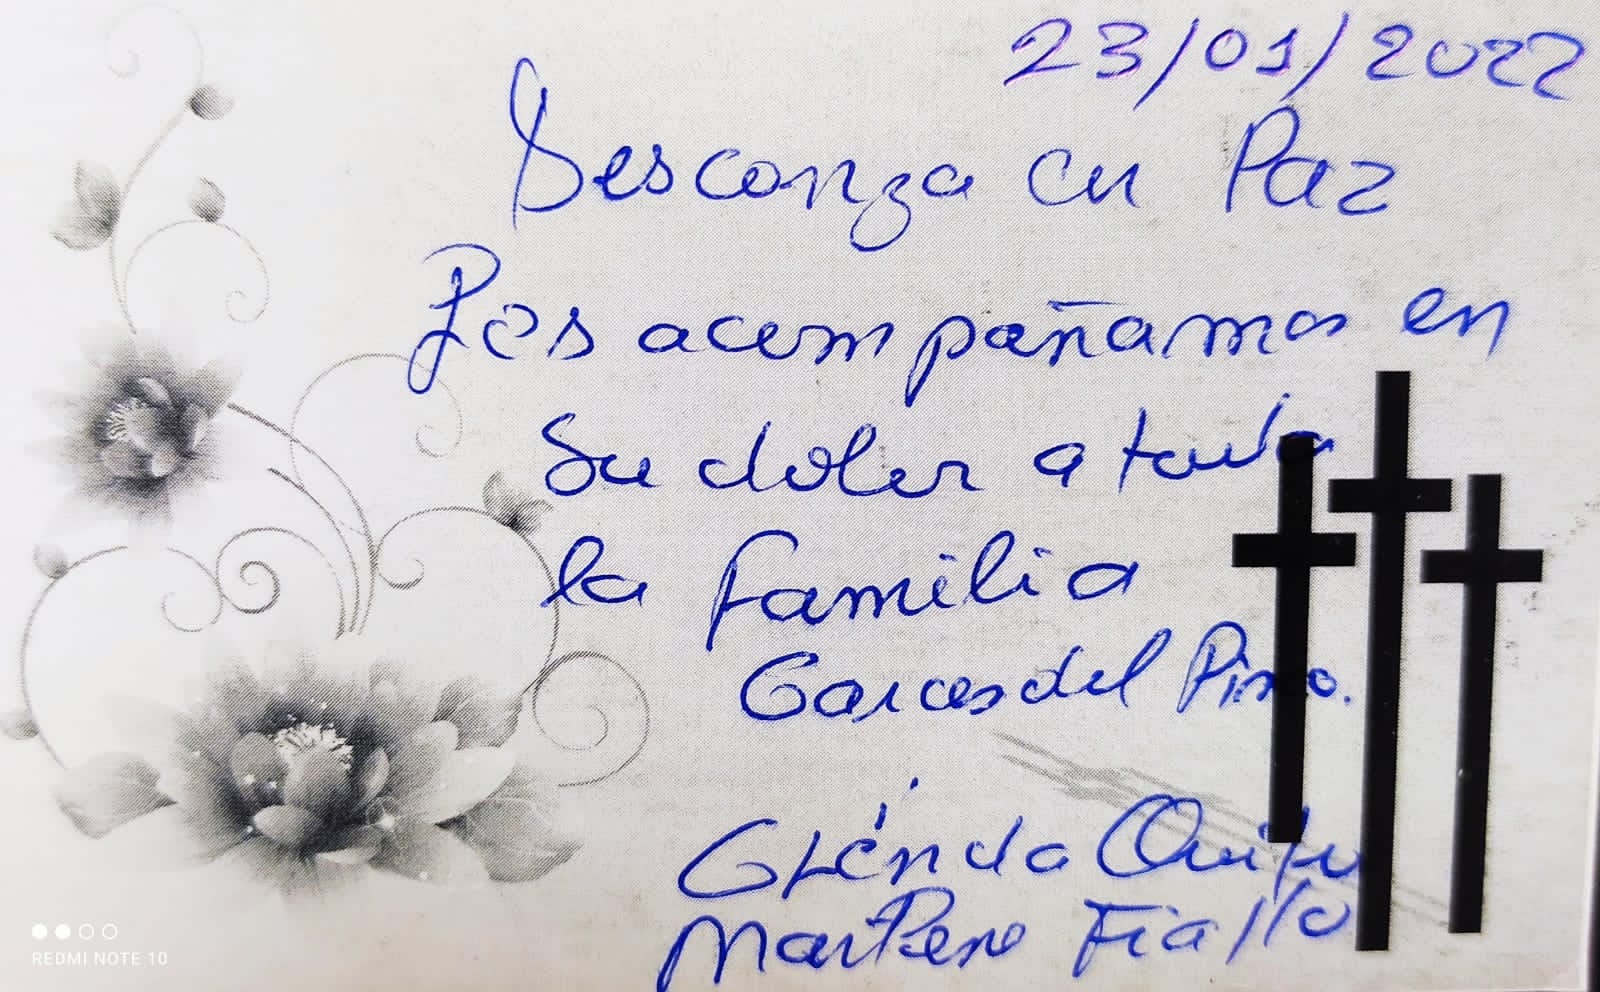 23/01/2022
Desconza en Paz
Los acompañamos en
Su dolor a toda
la familia
Garces del Pino.
Glenda Quito
Marlene Fiallo
REDMI NOTE 10